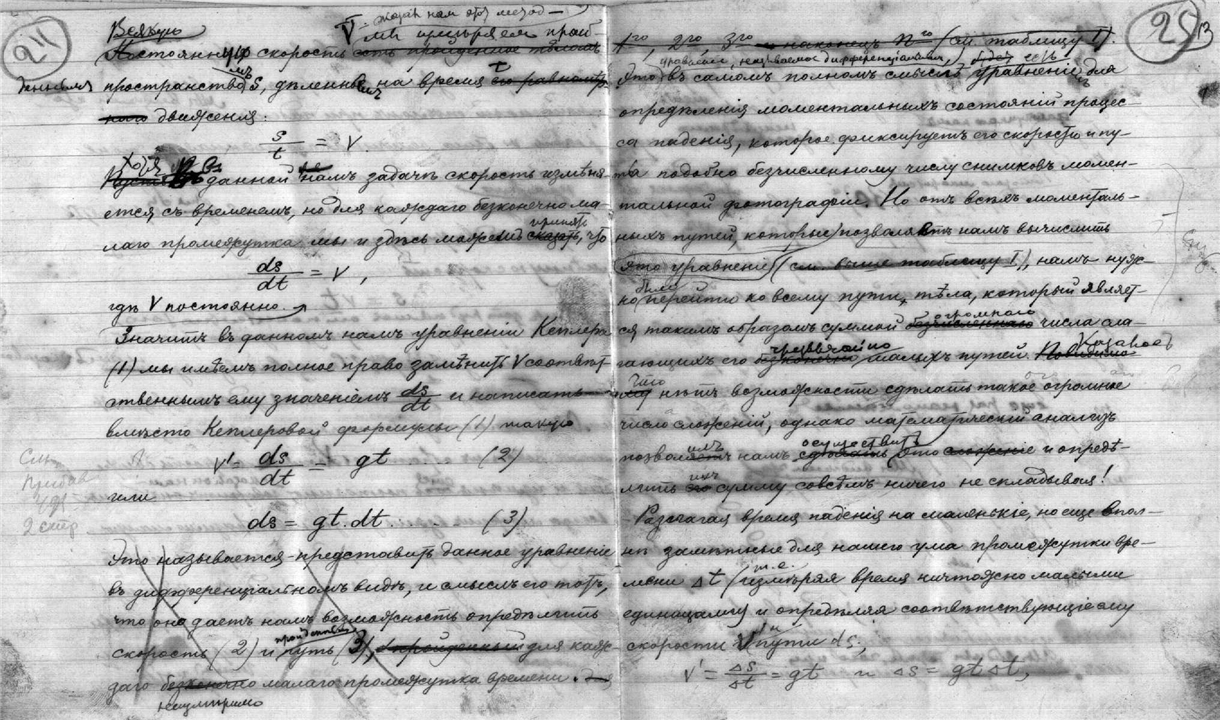 24
Всякую
V
Постоянную скорость мы измѣряемъ прой-
деннымъ пространствомъ S, дѣленнымъ на время t
движенія:
s/t = V.
Хотя въ данной намъ задачѣ скорость измѣня-
ется съ временемъ, но для каждаго безконечно ма-
лаго промежутка мы и здѣсь можемъ принять, что
ds/dt = V,
гдѣ V постоянно.
Значитъ въ данномъ намъ уравненіи Кеплера
(1) мы имѣемъ полное право замѣнить V соотвѣт-
ственнымъ ему значеніемъ ds/dt и написать
вмѣсто Кеплеровой формулы (1) такую
V' = ds/dt = gt (2)
или
ds = gt.dt (3)
Это называется представить данное уравненіе
въ дифференціальномъ видѣ, и смыслъ его тотъ,
что оно даетъ намъ возможность опредѣлить
скорость (2) и пройденный путь (3), для каж-
даго безконечно малаго промежутка времени.
неизмѣримо
См.
2 стр
25
1го, 2го, 3го и наконецъ nго (см таблицу I).
Это въ самомъ полномъ смыслѣ уравненіе, называемое дифференціальнымъ, для
опредѣленія моментальныхъ состояній процес-
са паденія, которое фиксируетъ его скорости и пу-
ти подобно безчисленному числу снимковъ момен-
тальной фотографіи. Но отъ всѣхъ моменталь-
ныхъ путей, которые позволяетъ намъ вычислить
это уравненіе (см. выше таблицу I), намъ нуж-
но было перейти ко всему пути тѣла, который являет-
ся такимъ образомъ суммой огромнаго числа сла-
гающихъ его чрезвычайно малыхъ путей. Казалось
бы нѣтъ возможности сдѣлать такое огромное
число сложеній, однако математическій анализъ
позволяетъ намъ осуществить это и опредѣ-
лить ихъ сумму совсѣмъ ничего не складывая!
Разлагая время паденія на маленькіе, но еще впол-
нѣ замѣтные для нашего ума промежутки вре-
мени Δt (т.е. измѣряя время ничтожно малыми
единицами) и опредѣляя соотвѣтствующіе ему
скорости V' и пути ds,
V' = Δs/Δt = gt и Δs = gt Δt,